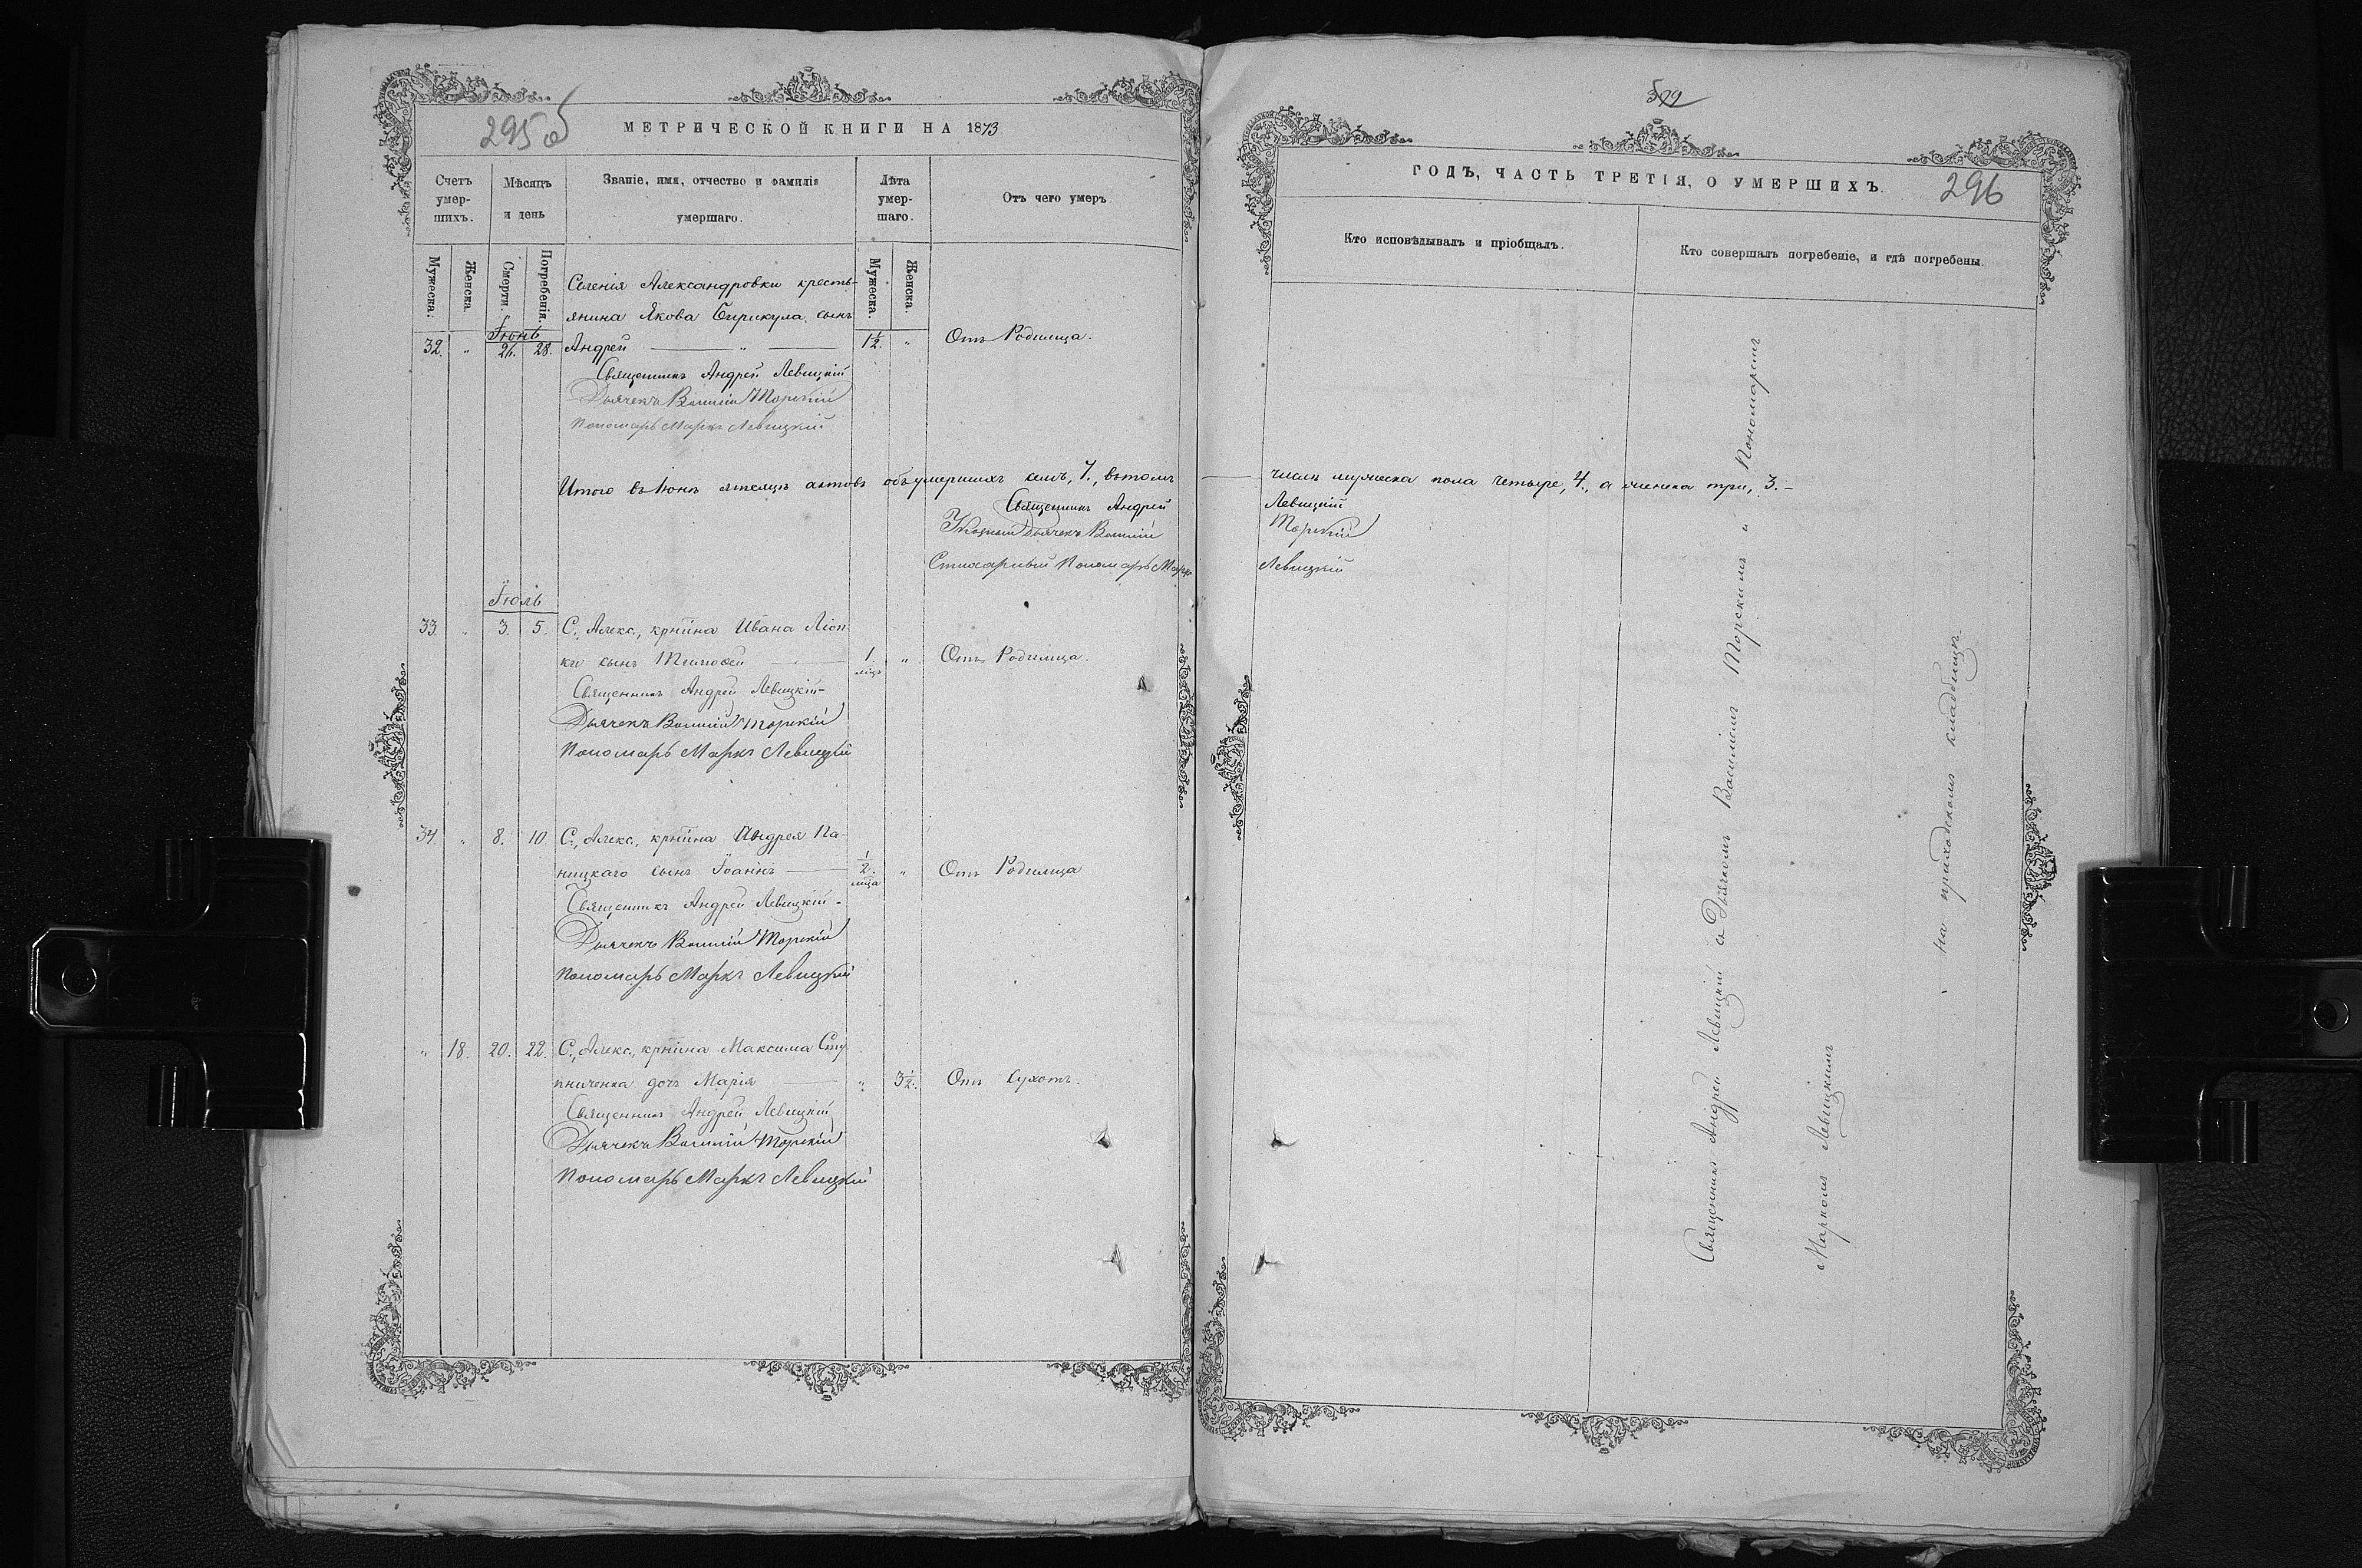 295 об
МЕТРИЧЕСКОЙ КНИГИ НА 1873
Счетъ умер- шихъ.
Мѣсяцъ и день
Званіе, имя, отчество и фамилія умершаго.
Лѣта умер- шаго.
Отъ чего умеръ
Мужеска.
Женска.
Смерти.
Погребенія.
Мужеска.
Женска.
Селенія Александровки кресть-
янина Якова сынъ
Іюнь
32. " 26. 28. Андрей — " — 1½. " Отъ Родимца.
Священникъ Андрей Левицкій
Дьячекъ Василій Торскій
Пономарь Маркъ Левицкій
Итого въ Іюнѣ мѣсяцѣ актовъ объ умершихъ семь, 7., въ томъ
Священникъ Андрей
Указный Дьячекъ Василій
Стихарный Пономарь Маркъ
Іюль
33. " 3. 5. С., Алекс., крнина Ивана Ліоп-
ки сынъ Тимофей — 1 мѣць " Отъ Родимца.
Священникъ Андрей Левицкій
Дьячекъ Василій Торскій
Пономарь Маркъ Левицкій
34. " 8. 10. С., Алекс., крнина Андрея Па-
ницкаго сынъ Іоаннъ — ½. мца " Отъ Родимца
Священникъ Андрей Левицкій
Дьячекъ Василій Торскій
Пономарь Маркъ Левицкій
" 18. 20. 22. С., Алекс., крнина Максима Сту-
пниченка дочь Марія — " 3½. Отъ Сухотъ.
Священникъ Андрей Левицкій
Дьячекъ Василій Торскій
Пономарь Маркъ Левицкій
ГОДЪ, ЧАСТЬ ТРЕТІЯ, О УМЕРШИХЪ.
296
Кто исповѣдывалъ и пріобщалъ.
Кто совершалъ погребеніе, и гдѣ погребены.
числѣ мужеска пола четыре, 4., а женска три, 3.
Левицкій
Торскій
Левицкій
Священникъ Андрей Левицкій съ Дьячкомъ Василіемъ Торскимъ " Пономаремъ
Маркомъ Левицкимъ
на приходскомъ кладбищѣ.